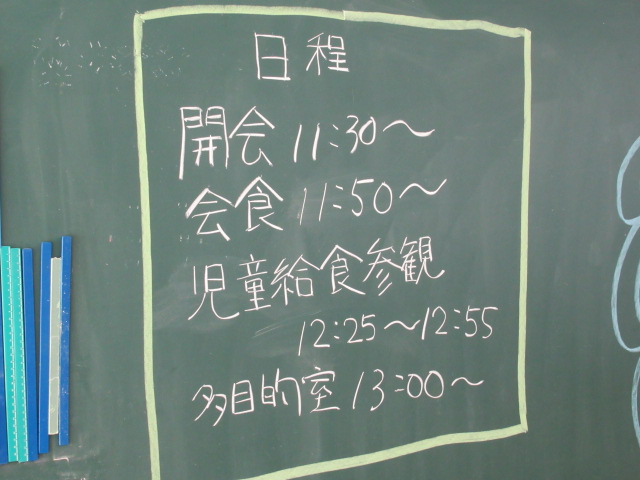 日程
開会 11:30～
会食 11:50～
児童給食参観
12:25～12:55
多目的室 13:00～